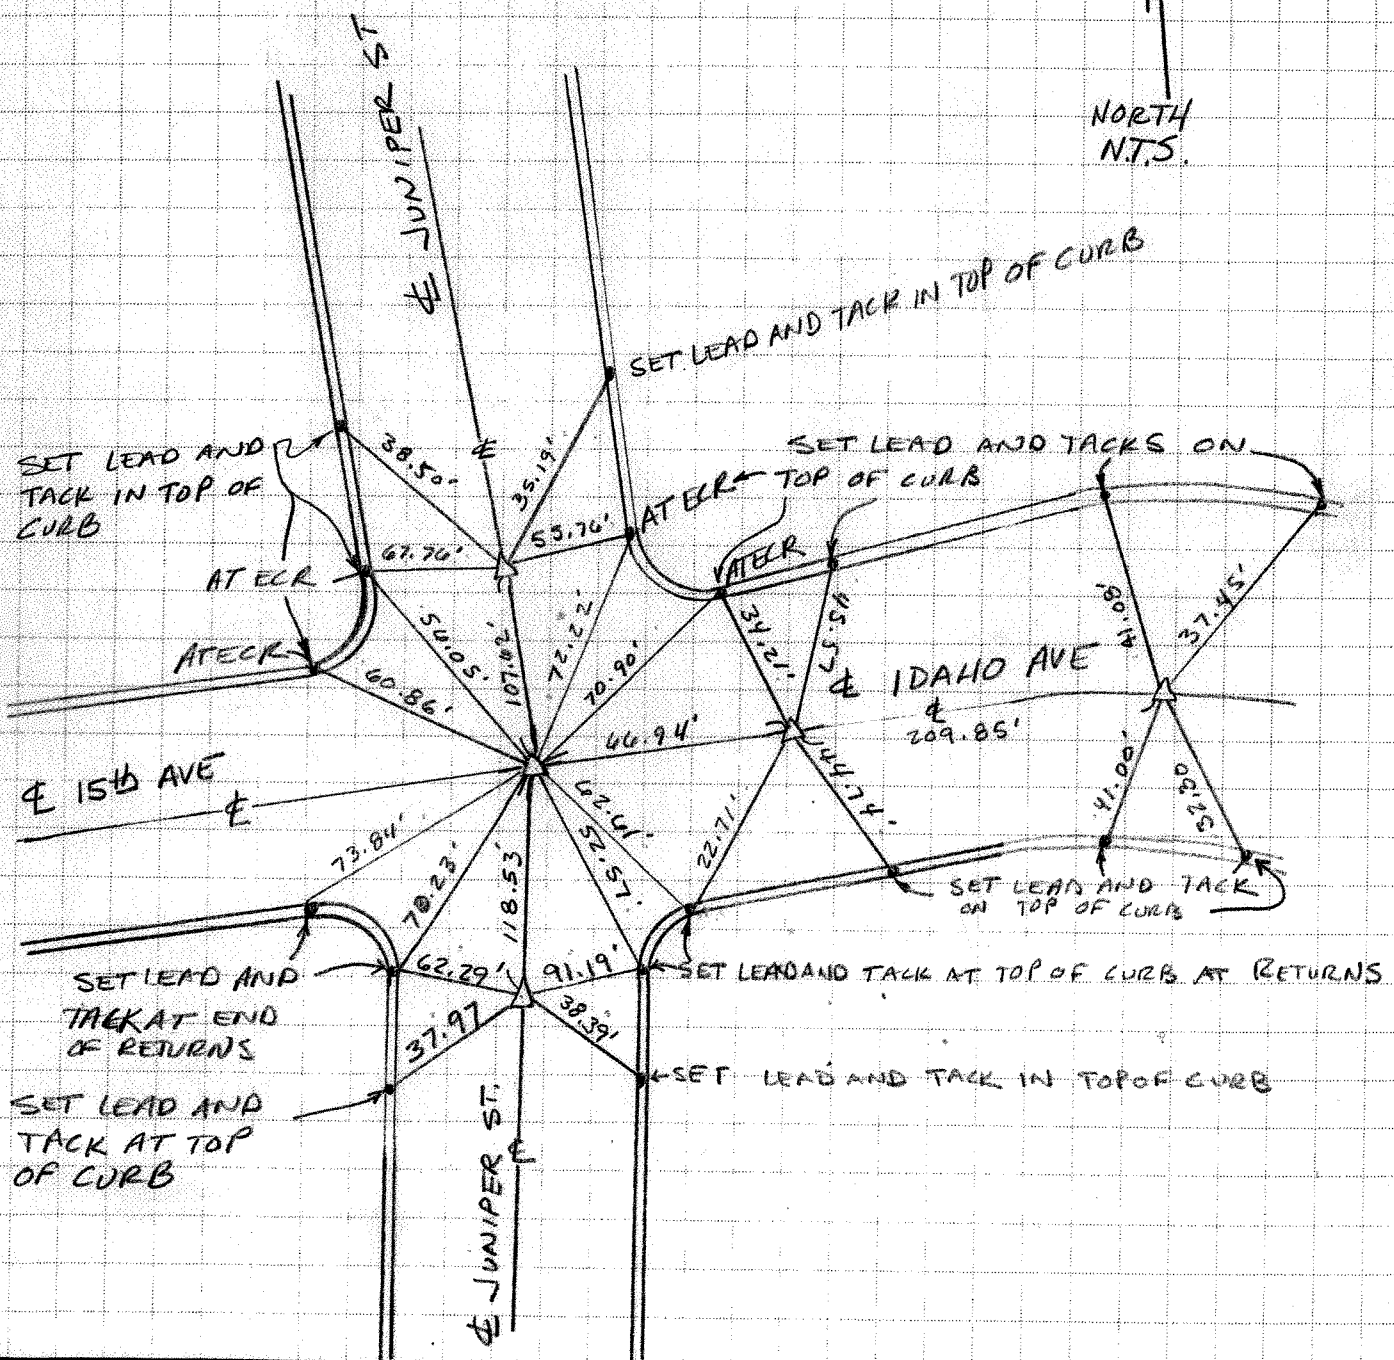 ℄ JUNIPER ST
NORTH
N.T.S.
SET LEAD AND TACK IN TOP OF CURB
SET LEAD AND
TACK IN TOP OF
CURB
38.50'
℄
35.19'
SET LEAD AND TACKS ON
TOP OF CURB
AT ECR
AT ECR
67.76'
55.76'
AT ECR
AT ECR
54.05'
107.02'
72.22'
70.90'
34.21'
45.57
41.08'
37.45'
60.86'
℄ IDAHO AVE
℄
209.85'
66.94'
℄ 15th AVE
℄
73.84'
70.23'
118.53'
62.61'
52.57'
22.71'
44.74'
41.00'
32.30
SET LEAD AND TACK
ON TOP OF CURB
SET LEAD AND
TACK AT END
OF RETURNS
62.29'
91.19'
SET LEAD AND TACK AT TOP OF CURB AT RETURNS
37.97
38.39'
SET LEAD AND TACK IN TOP OF CURB
SET LEAD AND
TACK AT TOP
OF CURB
℄ JUNIPER ST.
℄